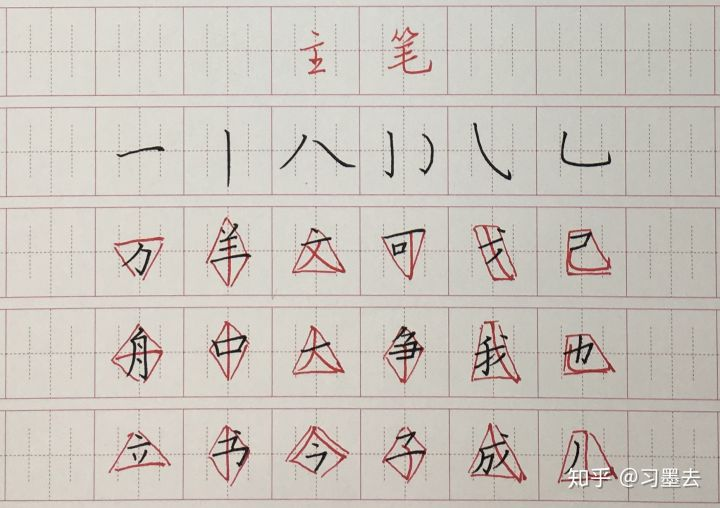 主笔
一 丨 八 亅 ㇂ 乚
万 羊 文 可 戈 己
舟 中 大 争 我 也
立 书 今 子 成 儿
知乎 @习墨去